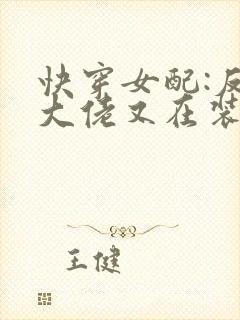 快穿女配:反
大佬又在装
王健